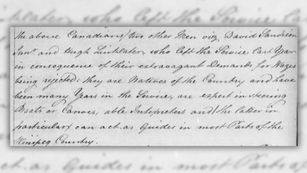 the above Canadians, two other Men viz. David Sandison
Senr. and Hugh Linklater, who left the Service last Year
in consequence of their extravagant Demands for Wages
being rejected: they are Natives of the Country and have
been many Years in the Service, are expert in steering
Boats or Canoes, able Interpreters and the latter in
particular can act as Guides in most Parts of the
Winipeg Country.